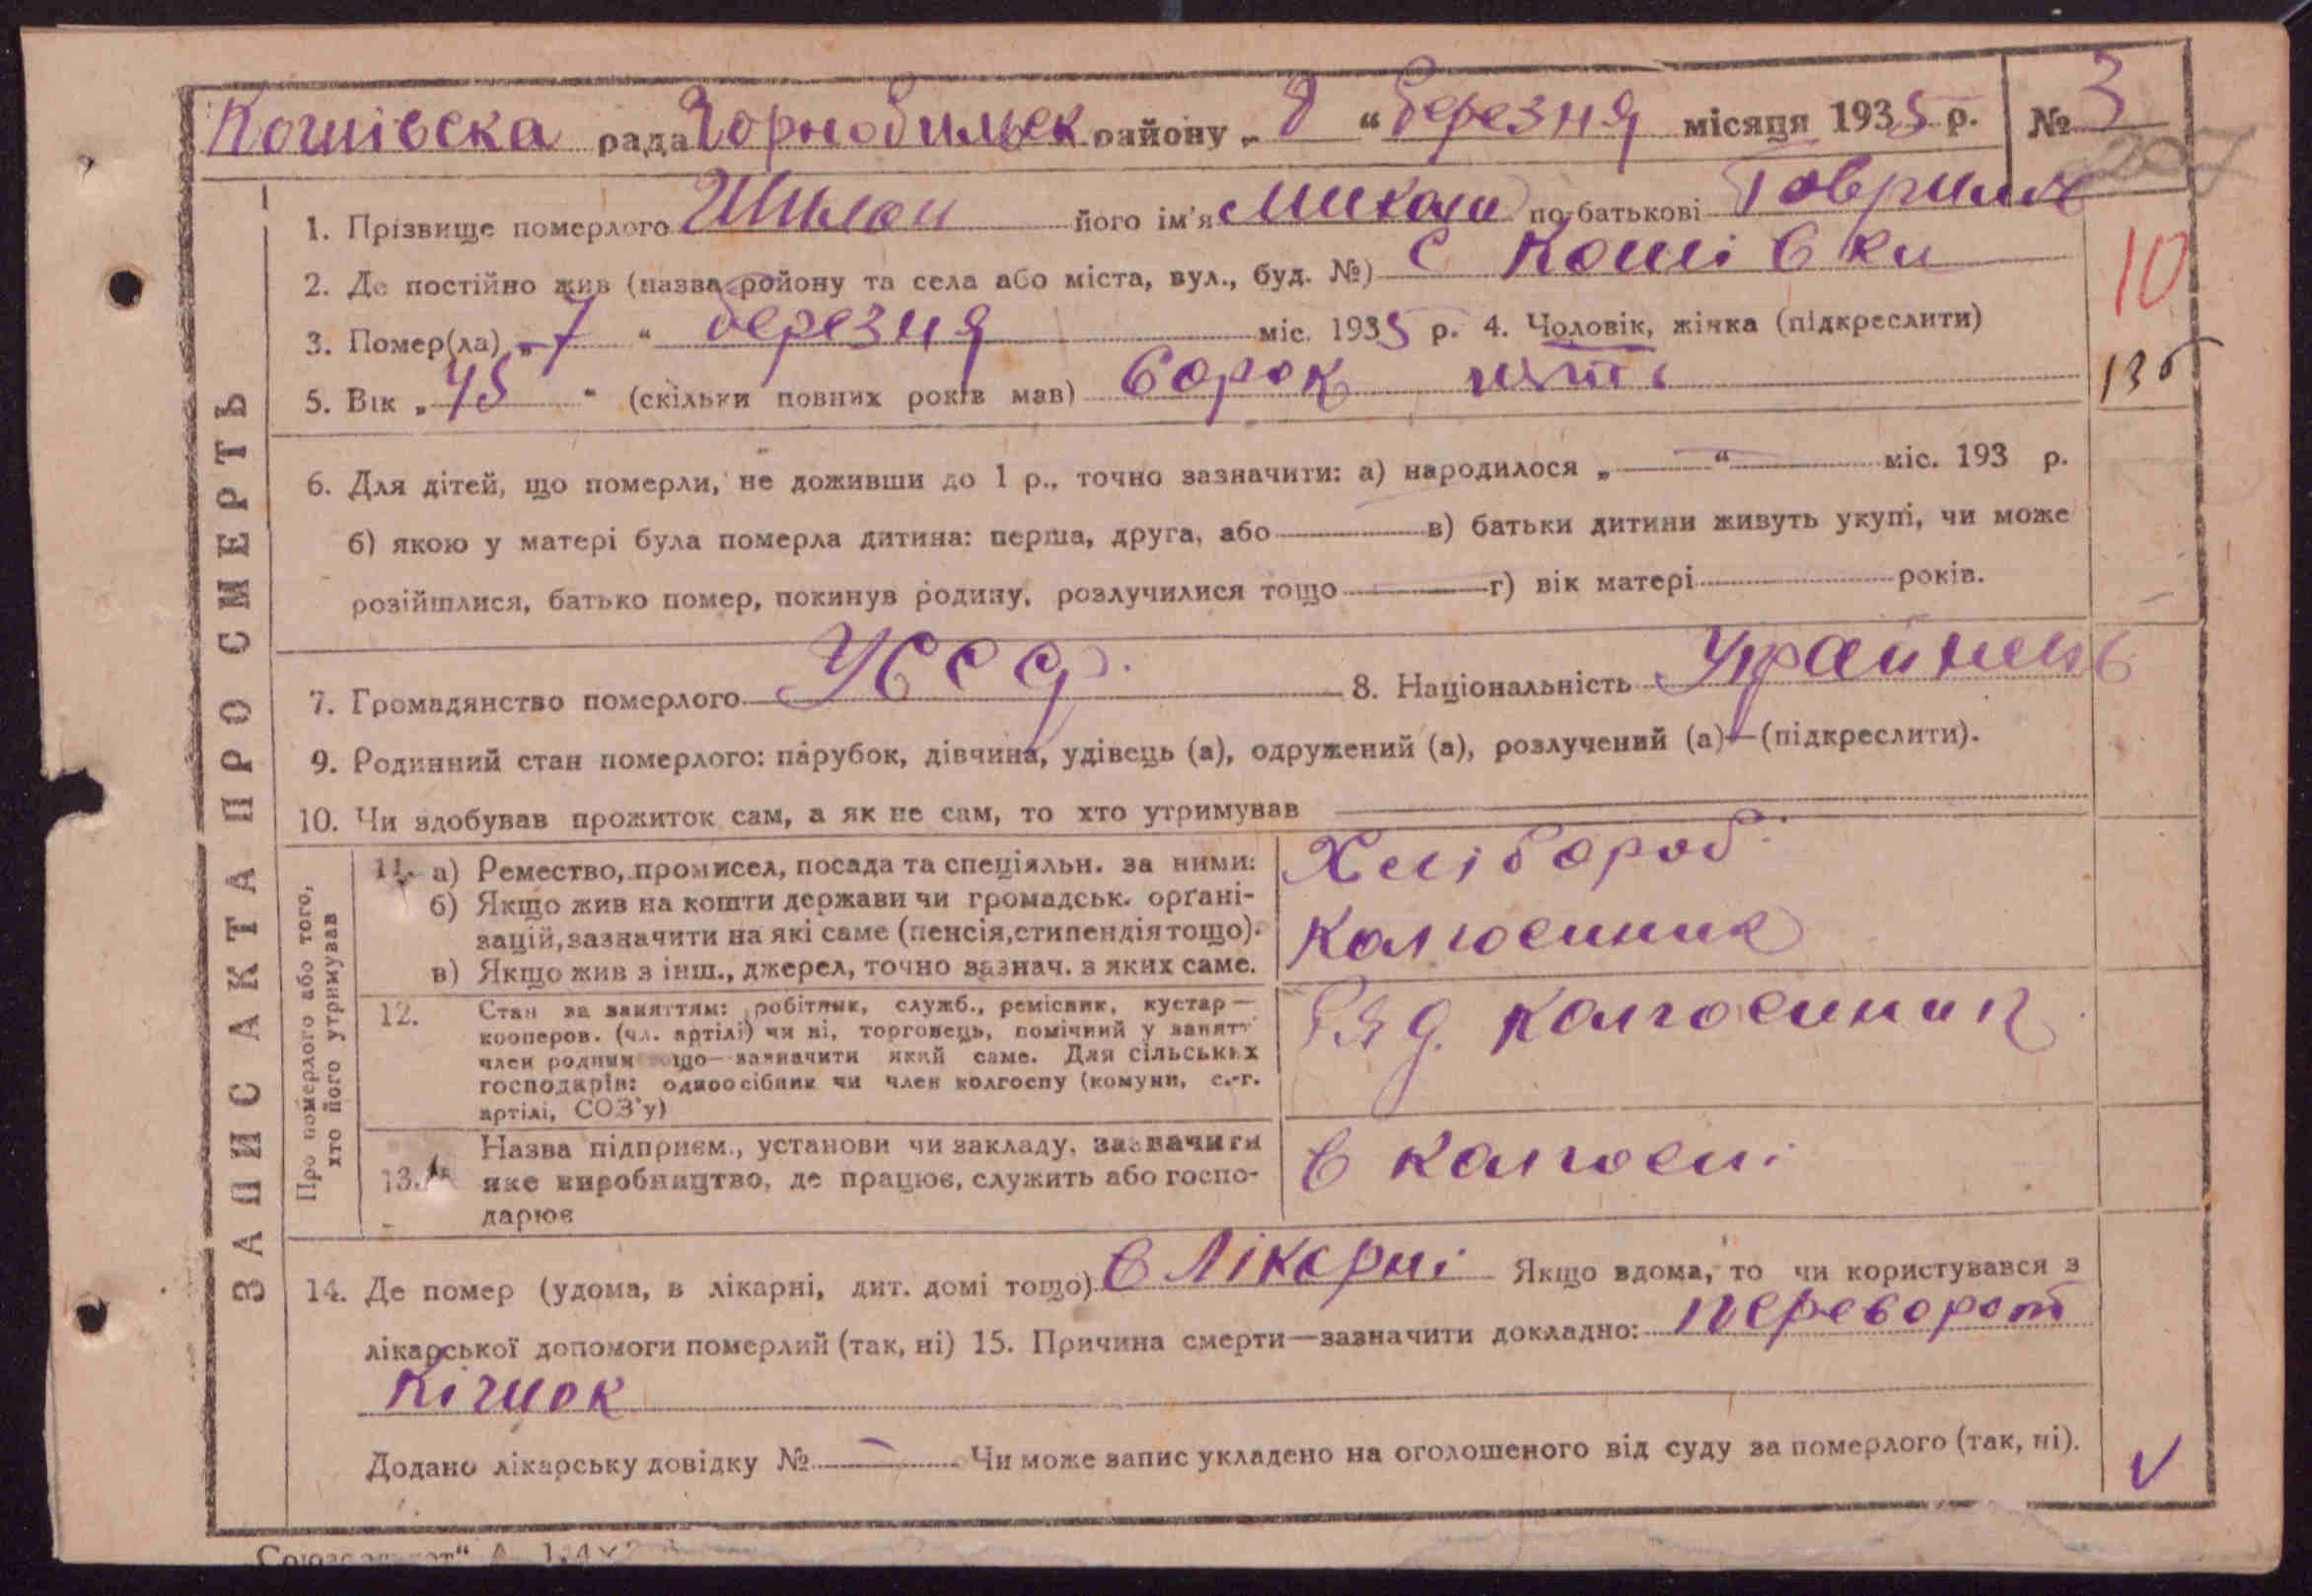 Кошівска рада Чорнобильск району „ 8 “ березня місяця 1935 р. № 3
207
ЗАПИС АКТА ПРО СМЕРТЬ
1. Прізвище померлого Шилан його ім'я Михаил по-батькові Гаврилов
2. Де постійно жив (назва району та села або міста, вул., буд. №) с Кошівки
10
3. Помер(ла) „ 7 “ березня міс. 1935 р. 4. Чоловік, жінка (підкреслити)
5. Вік „ 45 “ (скільки повних років мав) Сорок пять
136
6. Для дітей, що померли, не доживши до 1 р., точно зазначити: а) народилося „ “ міс. 193 р.
б) якою у матері була померла дитина: перша, друга, або в) батьки дитини живуть укупі, чи може
розійшлися, батько помер, покинув родину, розлучилися тощо г) вік матері років.
7. Громадянство померлого УССР 8. Національність Украйнець
9. Родинний стан померлого: парубок, дівчина, удівець (а), одружений (а), розлучений (а)—(підкреслити).
10. Чи здобував прожиток сам, а як не сам, то хто утримував
Про померлого або того, хто його утримував
11. а) Ремество, промисел, посада та спеціяльн. за ними: Хлібороб
б) Якщо жив на кошти держави чи громадськ. органі-
зацій, зазначити на які саме (пенсія, стипендія тощо). Колгоспник
в) Якщо жив з інш., джерел, точно зазнач. з яких саме.
12. Стан за заняттям: робітник, служб., ремісник, кустар— Ряд. колгоспник
кооперов. (чл. артілі) чи ні, торговець, помічний у занятт
член родини тощо—зазначити який саме. Для сільських
господарів: одноосібник чи член колгоспу (комуни, с.-г.
артілі, СОЗ'у)
13. Назва підприєм., установи чи закладу, зазначити
яке виробництво, де працює, служить або госпо- в колгоспі
дарює
14. Де помер (удома, в лікарні, дит. домі тощо) в Лікарні Якщо вдома, то чи користувався з
лікарської допомоги померлий (так, ні) 15. Причина смерти—зазначити докладно: переворот
кішок
Додано лікарську довідку № — Чи може запис укладено на оголошеного від суду за померлого (так, ні).